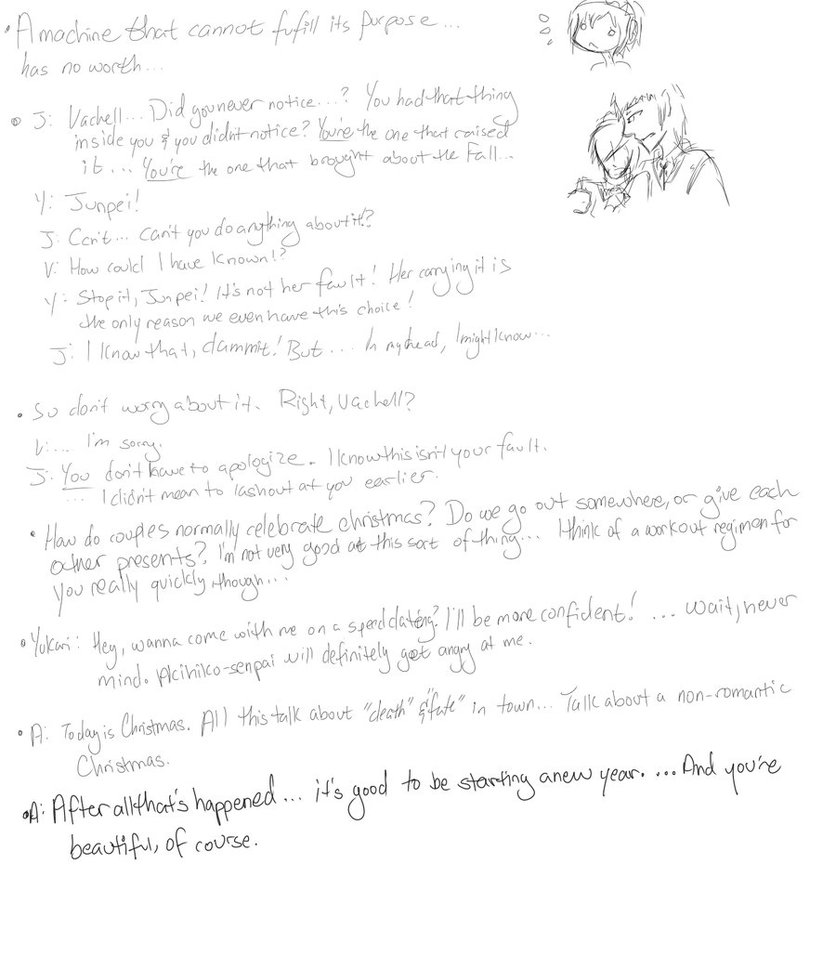 • A machine that cannot fufill its purpose...
has no worth...
• J: Vachell... Did you never notice...? You had that thing
inside you & you didn't notice? You're the one that raised
it... You're the one that brought about the Fall...
Y: Junpei!
J: Can't... can't you do anything about it!?
V: How could I have known!?
Y: Stop it, Junpei! It's not her fault! Her carrying it is
the only reason we even have this choice!
J: I know that, dammit! But... In my head, I might know...
• So don't worry about it. Right, Vachell?
V: ... I'm sorry.
J: You don't have to apologize. I know this isn't your fault.
... I didn't mean to lash out at you earlier.
• How do couples normally celebrate christmas? Do we go out somewhere, or give each
other presents? I'm not very good at this sort of thing... I think of a workout regimen for
you really quickly though...
• Yukari: Hey, wanna come with me on a speed dating? I'll be more confident! ... wait, never
mind. Akihiko-senpai will definitely get angry at me.
• A: Today is Christmas. All this talk about "death" & "fate" in town... Talk about a non-romantic
Christmas.
• A: After all that's happened... it's good to be starting a new year. ... And you're
beautiful, of course.